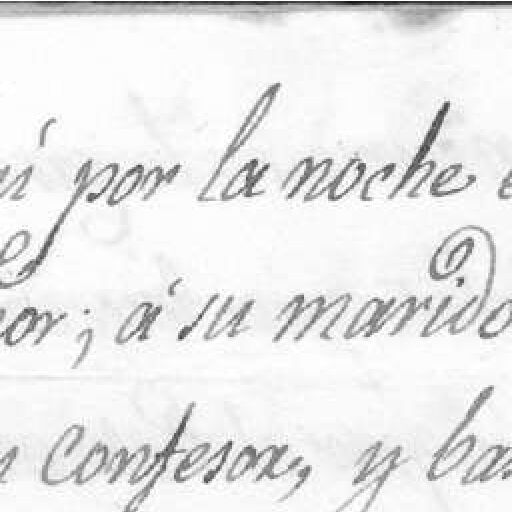 por la noche
; á su marido
confesor, y